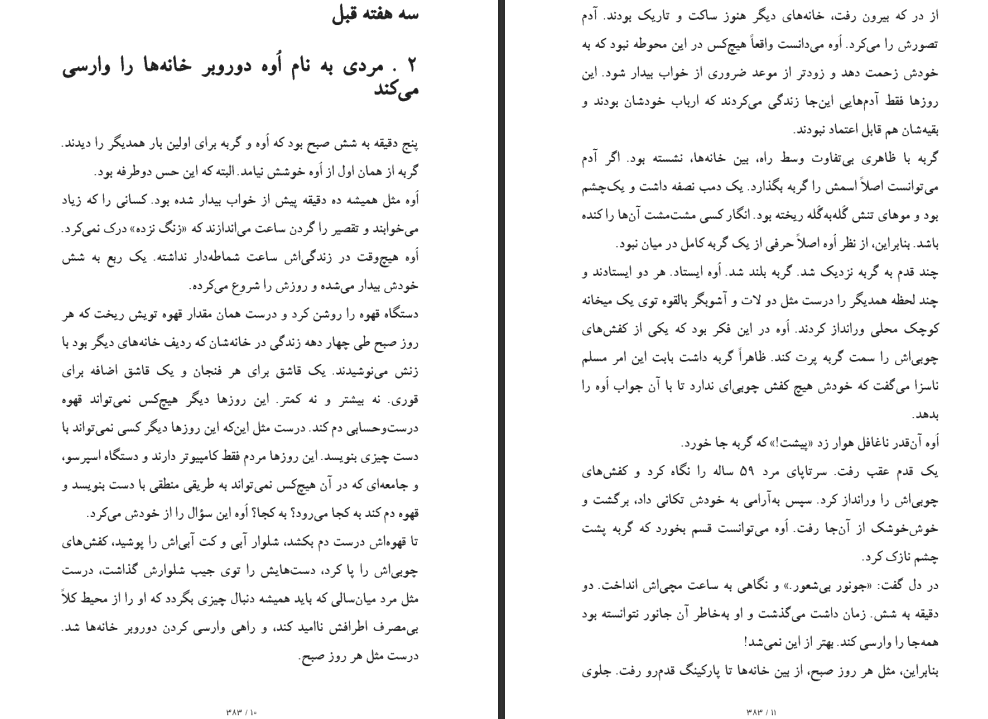 سه هفته قبل
۲ . مردی به نام اُوه دوروبر خانه‌ها را وارسی
می‌کند
پنج دقیقه به شش صبح بود که اُوه و گربه برای اولین بار همدیگر را دیدند.
گربه از همان اول از اُوه خوشش نیامد. البته که این حس دوطرفه بود.
اُوه مثل همیشه ده دقیقه پیش از خواب بیدار شده بود. کسانی را که زیاد
می‌خوابند و تقصیر را گردن ساعت می‌اندازند که «زنگ نزده» درک نمی‌کرد.
اُوه هیچ‌وقت در زندگی‌اش ساعت شماطه‌دار نداشته. یک ربع به شش
خودش بیدار می‌شده و روزش را شروع می‌کرده.
دستگاه قهوه را روشن کرد و درست همان مقدار قهوه تویش ریخت که هر
روز صبح طی چهار دهه زندگی در خانه‌شان که ردیف خانه‌های دیگر بود با
زنش می‌نوشیدند. یک قاشق برای هر فنجان و یک قاشق اضافه برای
قوری. نه بیشتر و نه کمتر. این روزها دیگر هیچ‌کس نمی‌تواند قهوه
درست‌وحسابی دم کند. درست مثل این‌که این روزها دیگر کسی نمی‌تواند با
دست چیزی بنویسد. این روزها مردم فقط کامپیوتر دارند و دستگاه اسپرسو،
و جامعه‌ای که در آن هیچ‌کس نمی‌تواند به طریقی منطقی با دست بنویسد و
قهوه دم کند به کجا می‌رود؟ به کجا؟ اُوه این سؤال را از خودش می‌کرد.
تا قهوه‌اش درست دم بکشد، شلوار آبی و کت آبی‌اش را پوشید، کفش‌های
چوبی‌اش را پا کرد، دست‌هایش را توی جیب شلوارش گذاشت، درست
مثل مرد میان‌سالی که باید همیشه دنبال چیزی بگردد که او را از محیط کلاً
بی‌مصرف اطرافش ناامید کند، و راهی وارسی کردن دوروبر خانه‌ها شد.
درست مثل هر روز صبح.
۱۰ / ۳۸۳
از در که بیرون رفت، خانه‌های دیگر هنوز ساکت و تاریک بودند. آدم
تصورش را می‌کرد. اُوه می‌دانست واقعاً هیچ‌کس در این محوطه نبود که به
خودش زحمت دهد و زودتر از موعد ضروری از خواب بیدار شود. این
روزها فقط آدم‌هایی این‌جا زندگی می‌کردند که ارباب خودشان بودند و
بقیه‌شان هم قابل اعتماد نبودند.
گربه با ظاهری بی‌تفاوت وسط راه، بین خانه‌ها، نشسته بود. اگر آدم
می‌توانست اصلاً اسمش را گربه بگذارد. یک دمب نصفه داشت و یک‌چشم
بود و موهای تنش گُله‌به‌گُله ریخته بود. انگار کسی مشت‌مشت آن‌ها را کنده
باشد. بنابراین، از نظر اُوه اصلاً حرفی از یک گربه کامل در میان نبود.
چند قدم به گربه نزدیک شد. گربه بلند شد. اُوه ایستاد. هر دو ایستادند و
چند لحظه همدیگر را درست مثل دو لات و آشوبگر بالقوه توی یک میخانه
کوچک محلی ورانداز کردند. اُوه در این فکر بود که یکی از کفش‌های
چوبی‌اش را سمت گربه پرت کند. ظاهراً گربه داشت بابت این امر مسلم
ناسزا می‌گفت که خودش هیچ کفش چوبی‌ای ندارد تا با آن جواب اُوه را
بدهد.
اُوه آن‌قدر ناغافل هوار زد «پیشت!» که گربه جا خورد.
یک قدم عقب رفت. سرتاپای مرد ۵۹ ساله را نگاه کرد و کفش‌های
چوبی‌اش را ورانداز کرد. سپس به‌آرامی به خودش تکانی داد، برگشت و
خوش‌خوشک از آن‌جا رفت. اُوه می‌توانست قسم بخورد که گربه پشت
چشم نازک کرد.
در دل گفت: «جونور بی‌شعور.» و نگاهی به ساعت مچی‌اش انداخت. دو
دقیقه به شش. زمان داشت می‌گذشت و او به‌خاطر آن جانور نتوانسته بود
همه‌جا را وارسی کند. بهتر از این نمی‌شد!
بنابراین، مثل هر روز صبح، از بین خانه‌ها تا پارکینگ قدم‌رو رفت. جلوی
۱۱ / ۳۸۳